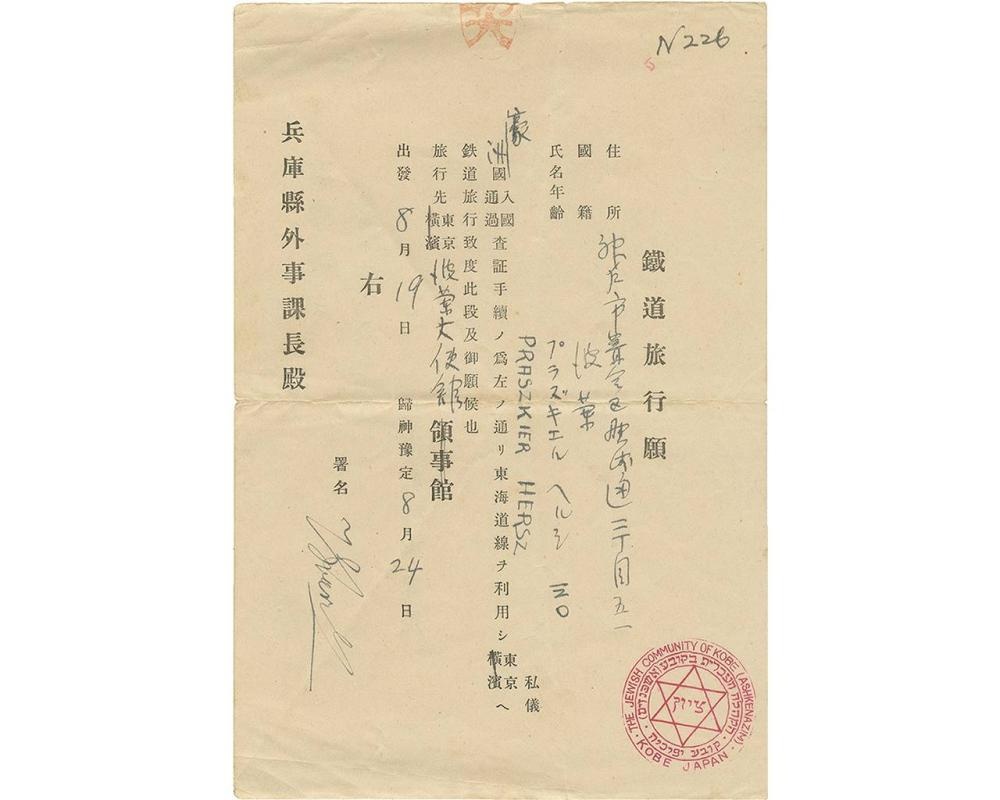 N226
鐵道旅行願
住所 神戸市葺合區熊内通二丁目五一
國籍 波蘭
氏名年齡 プラズキエル ヘルシ 三〇
PRASZKIER HERSZ
私儀
豪洲國入國通過査証手續ノ爲左ノ通リ東海道線ヲ利用シ東京横濱へ
鉄道旅行致度此段及御願候也
旅行先 東京横濱 波蘭大使館領事館
出發 8月19日 歸神豫定 8月24日
右
署名
兵庫縣外事課長殿
THE JEWISH COMMUNITY OF KOBE (ASHKENAZIM)
KOBE JAPAN
ציון
קובע יפוניה